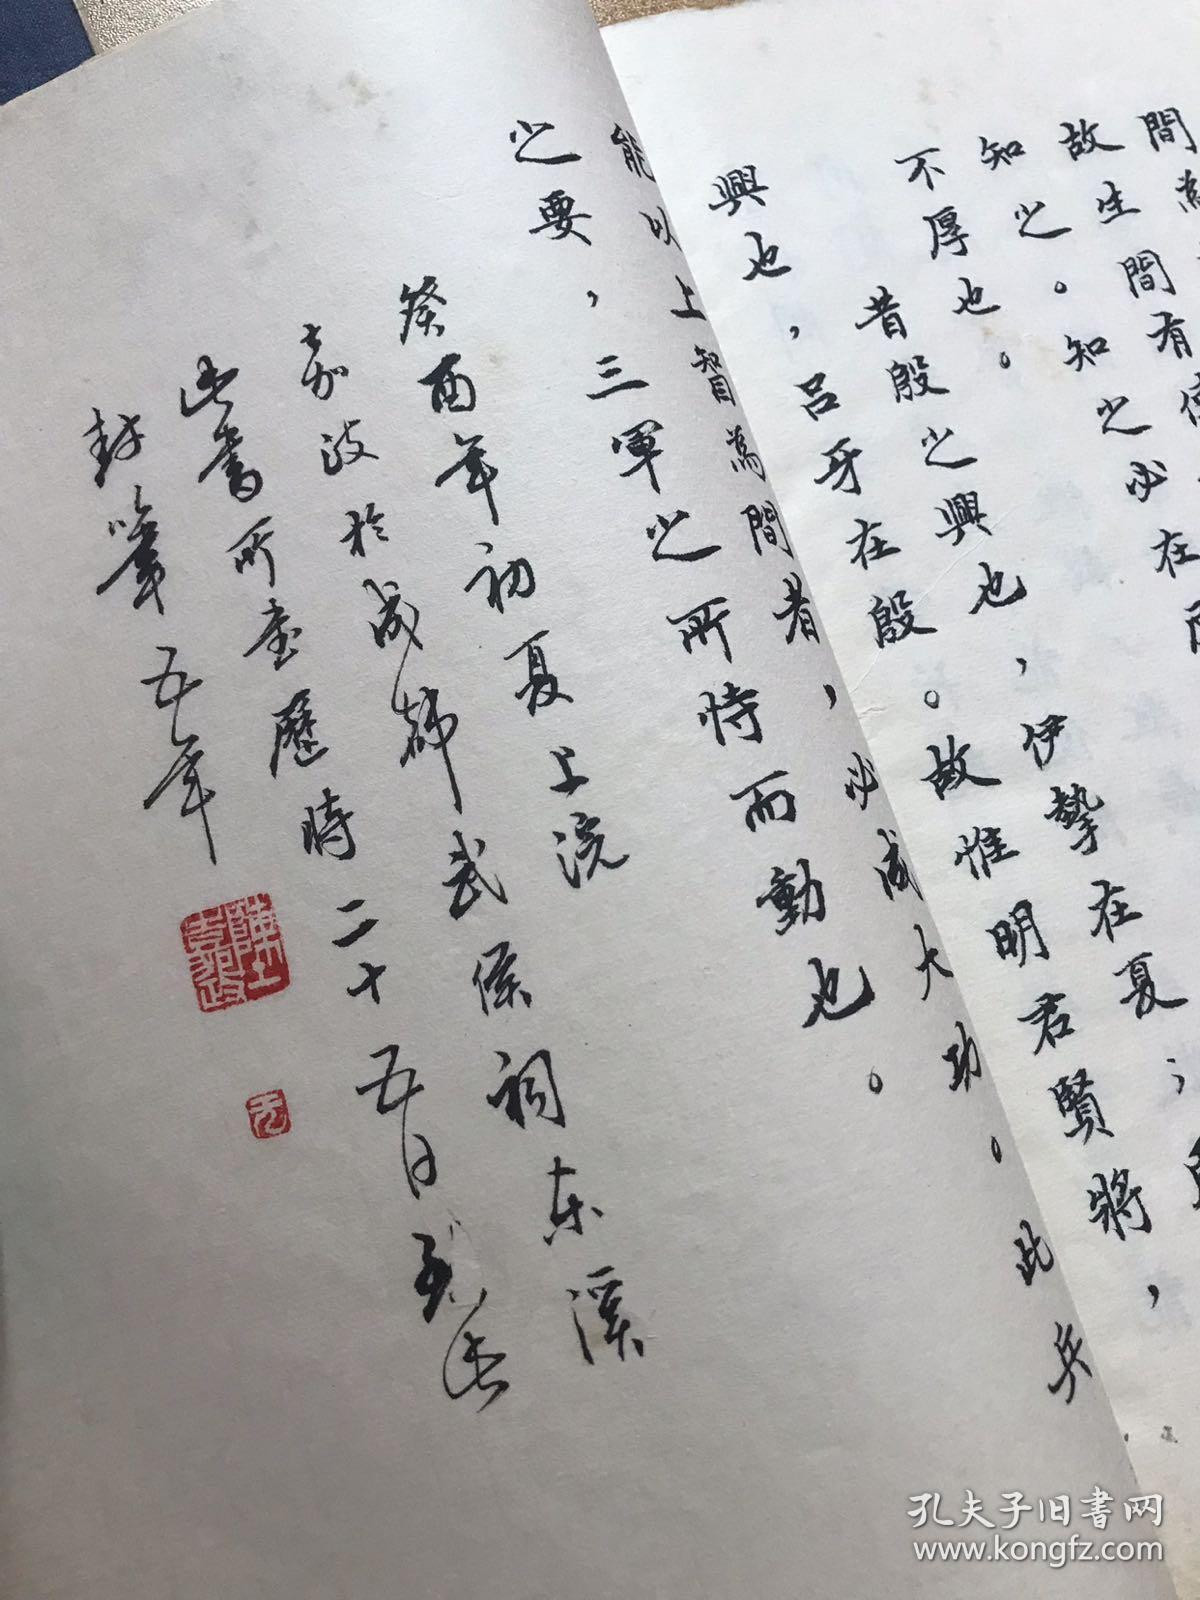 間為
故生間有
知之。知之必在
不厚也。
昔殷之興也，伊摯在夏；
興也，呂牙在殷。故惟明君賢將，
能以上智為間者，必成大功。此兵
之要，三軍之所恃而動也。
癸酉年初夏上浣
嘉政於成都武侯祠东溪
此書所書歷時二十五日
封筆五年
孔夫子旧书网
www.kongfz.com